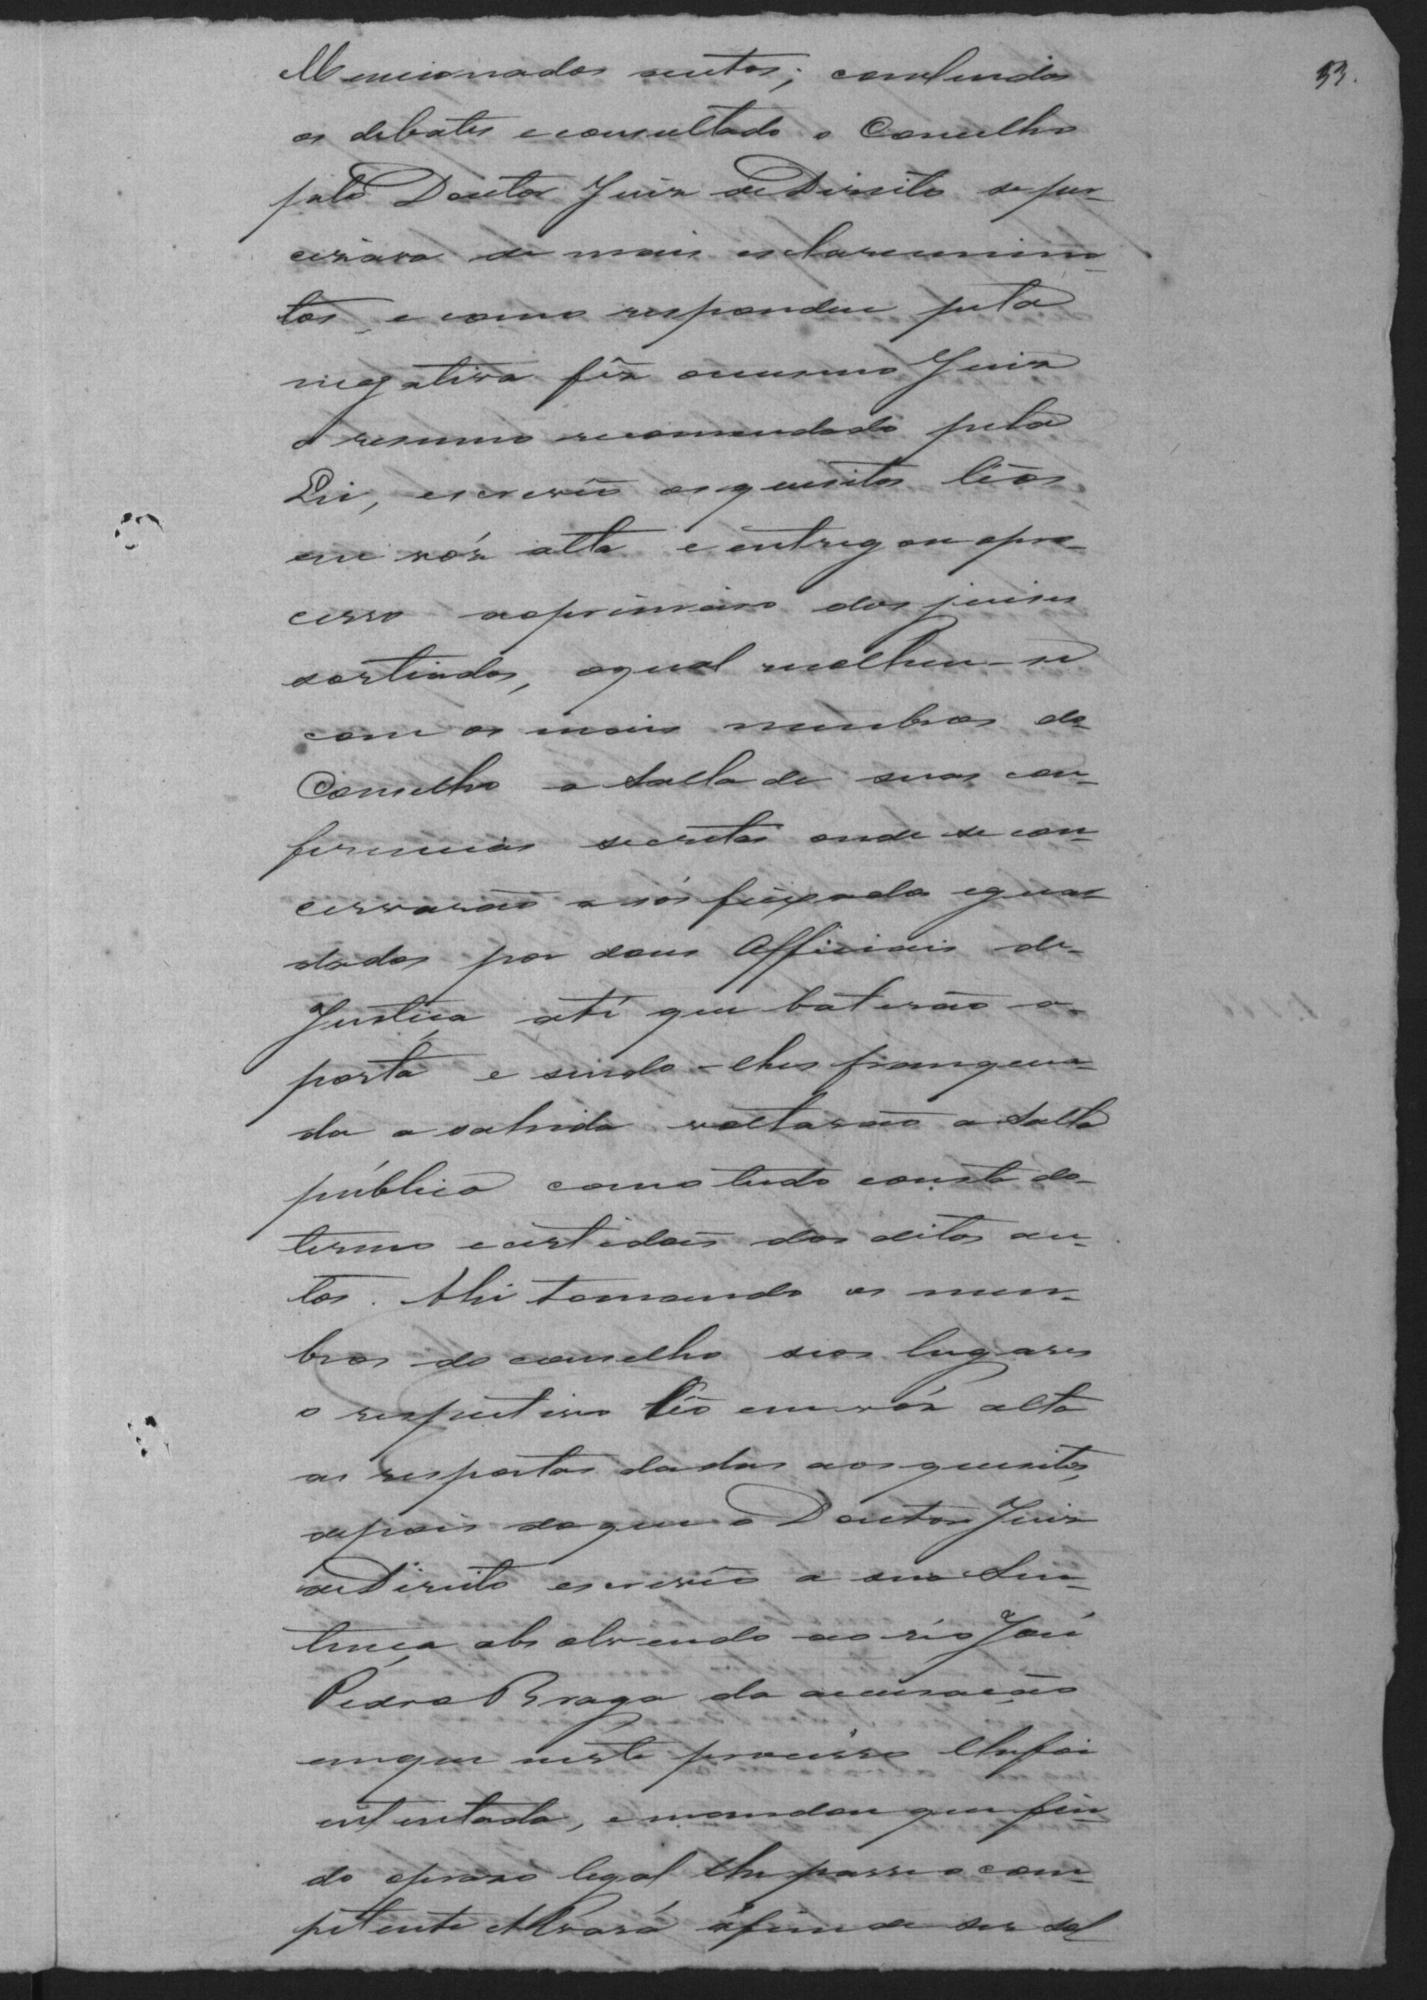 53.
Mencionados autos; concluidos
os debates e consultado o Conselho
pelo Doutor Juiz de Direito se per-
cizava de mais esclarecimen-
tos, e como respondeu pela
negativa fêz o mesmo Juiz
o resumo recomendado pela
Lei, escreveo os quesitos lêo os
em vóz alta e entregou o pro-
cesso ao primeiro dos juises
sortiados, o qual recolheu-se
com os mais membros do
Conselho a Salla de suas con-
ferencias secretas onde se con-
cervarão a sós feixada e guar-
dados por dous Officiais de
Justiça até que baterão a
porta e sendo-lhes franquea-
da a sahida voltarão a Salla
pública como tudo consta do
termo e certidois dos ditos au-
tos. Ahi tomando os mem-
bros do conselho seos lugares
o respectivo lêo em vóz alta
as respostas dadas aos quesitos,
depois do que o Doutor Juiz
de Direito escreveo a sua Sen-
tença absolvendo ao réo José
Pedro Braga da accusação
em que neste processo lhe foi
intentada, e mandou que fin-
do o praso legal lhe passe o com-
petente Alvará afim de ser sol